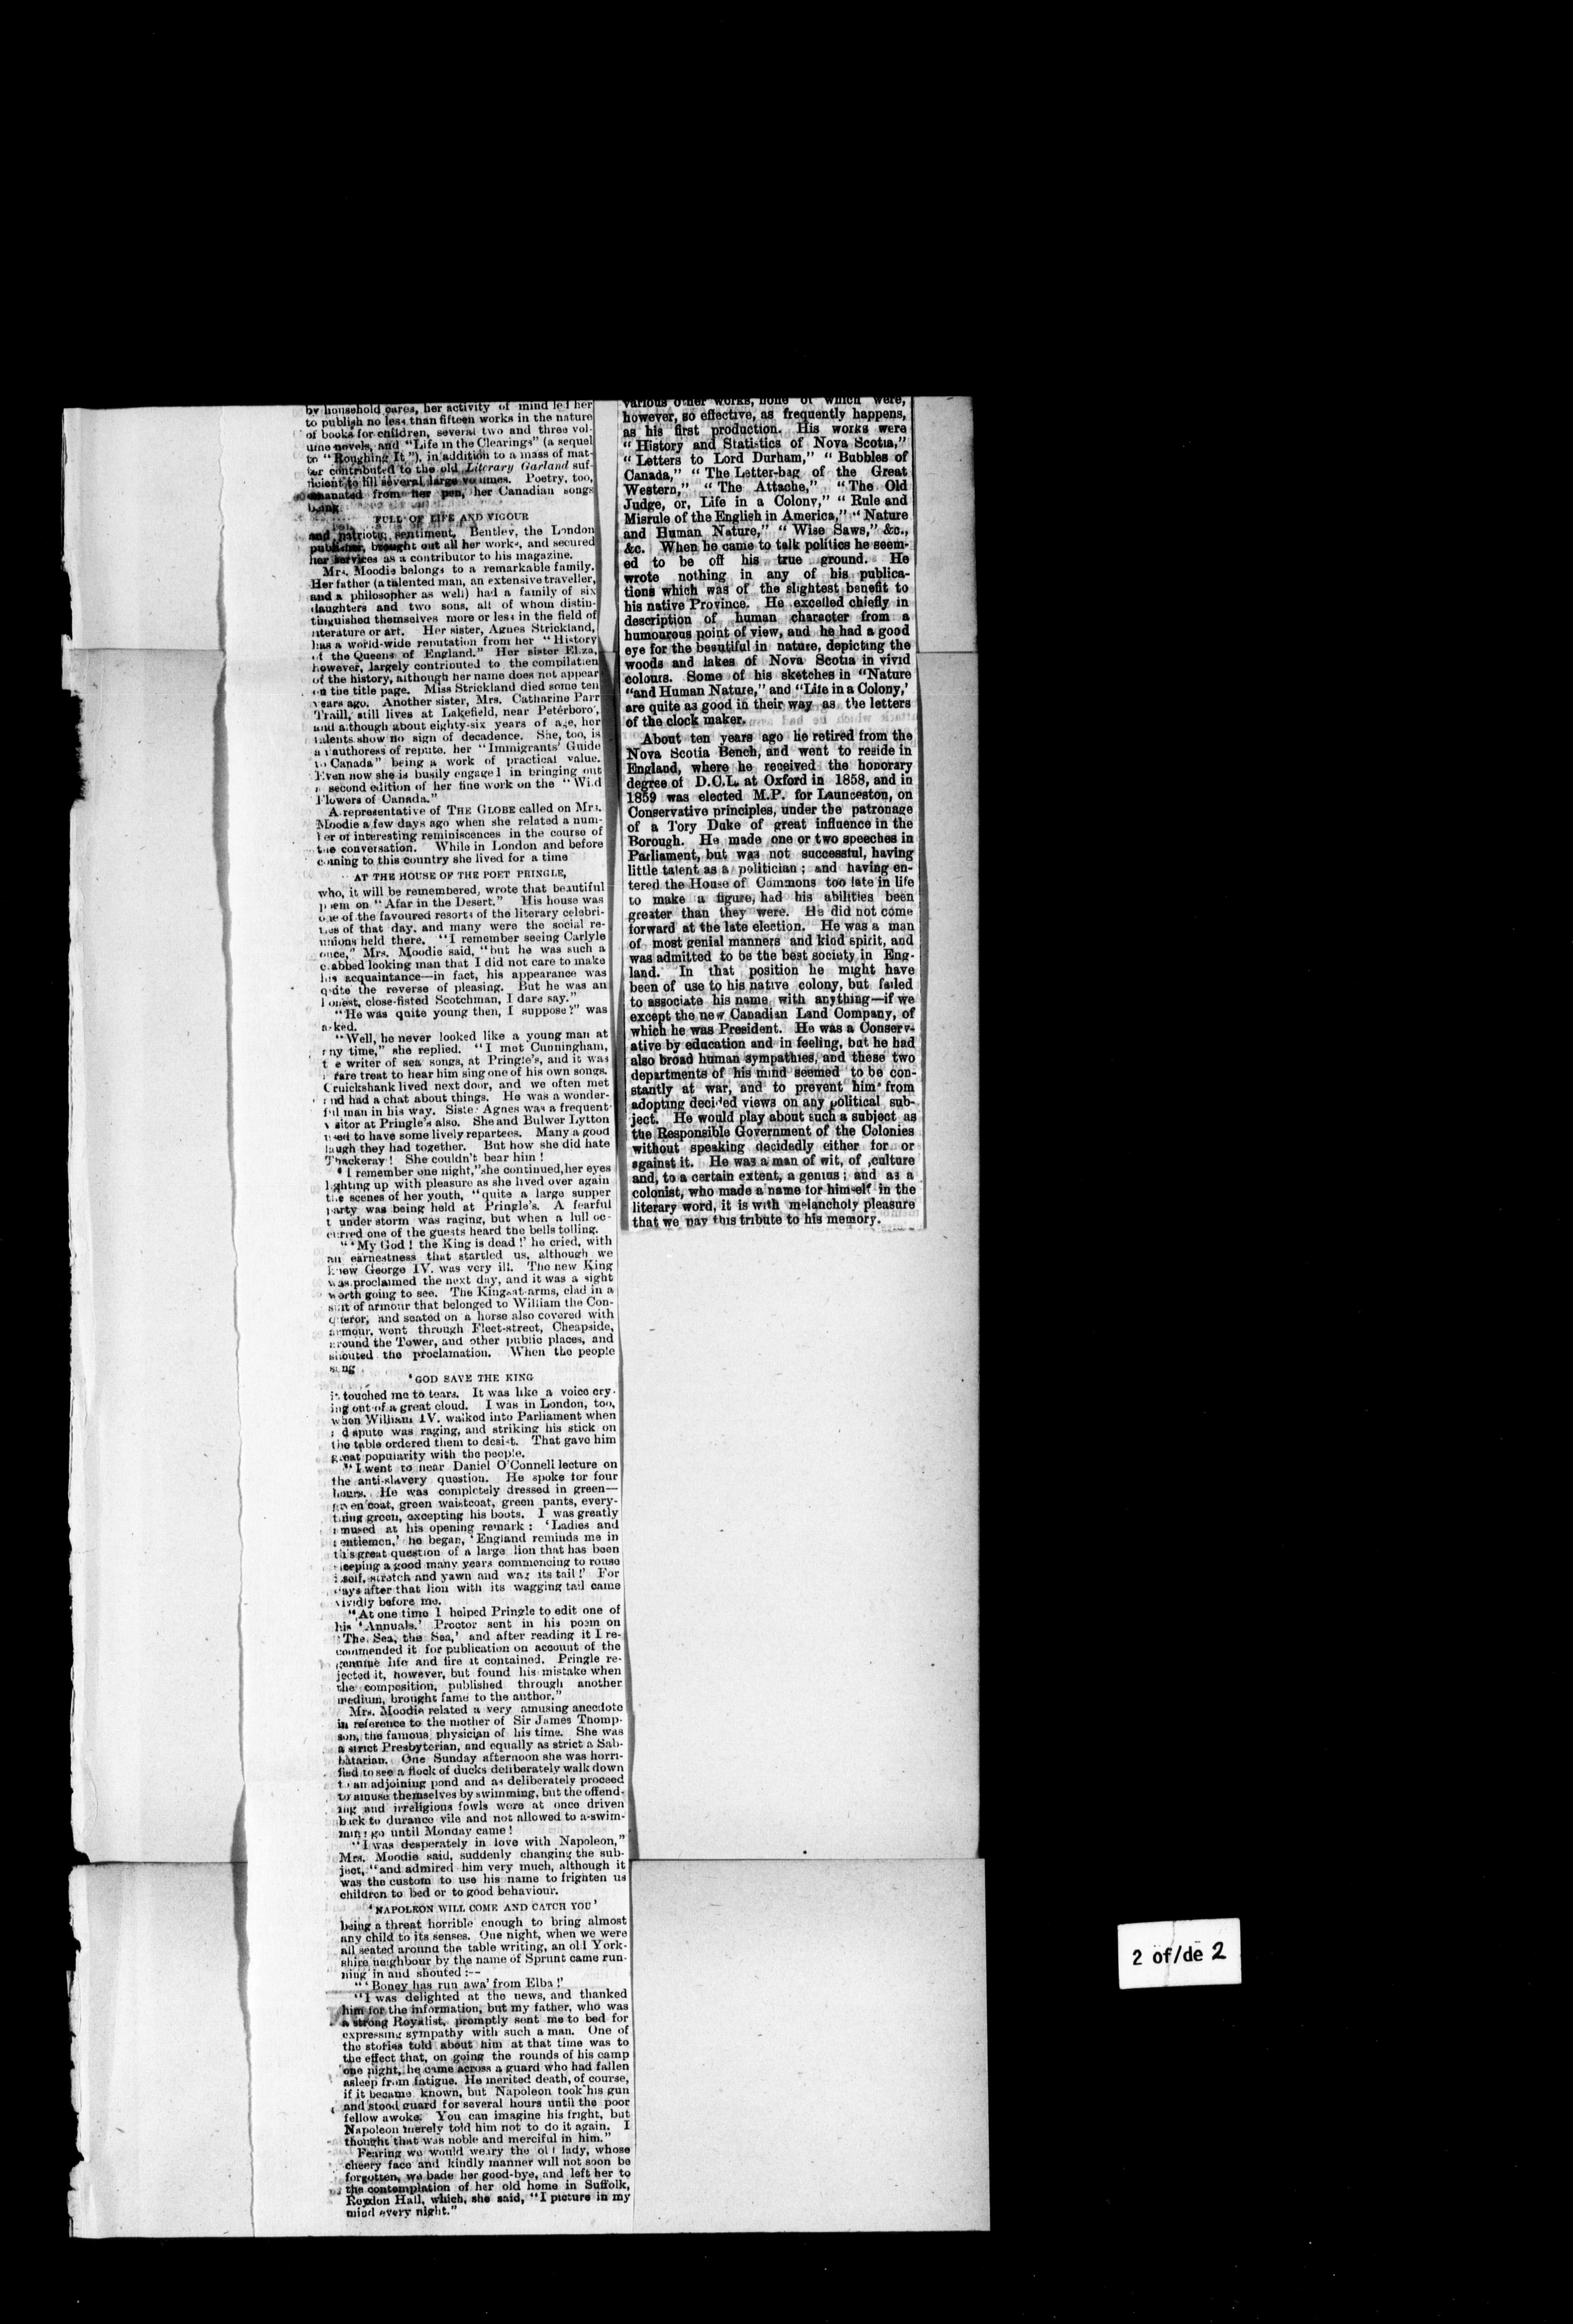 by household cares, her activity of mind led her
to publish no less than fifteen works in the nature
of books for children, several two and three vol-
ume novels, and "Life in the Clearings" (a sequel
to "Roughing It"), in addition to a mass of mat-
ter contributed to the old Literary Garland suf-
ficient to fill several large volumes. Poetry, too,
emanated from her pen, her Canadian songs
being
FULL OF LIFE AND VIGOUR
and patriotic sentiment. Bentley, the London
publisher, brought out all her works, and secured
her services as a contributor to his magazine.
Mrs. Moodie belongs to a remarkable family.
Her father (a talented man, an extensive traveller,
and a philosopher as well) had a family of six
daughters and two sons, all of whom distin-
tinguished themselves more or less in the field of
literature or art. Her sister, Agnes Strickland,
has a world-wide reputation from her "History
of the Queens of England." Her sister Eliza,
however, largely contributed to the compilation
of the history, although her name does not appear
on the title page. Miss Strickland died some ten
years ago. Another sister, Mrs. Catharine Parr
Traill, still lives at Lakefield, near Peterboro',
and although about eighty-six years of age, her
talents show no sign of decadence. She, too, is
an authoress of repute, her "Immigrants' Guide
to Canada" being a work of practical value.
Even now she is busily engaged in bringing out
a second edition of her fine work on the "Wild
Flowers of Canada."
A representative of THE GLOBE called on Mrs.
Moodie a few days ago when she related a num-
ber of interesting reminiscences in the course of
the conversation. While in London and before
coming to this country she lived for a time
AT THE HOUSE OF THE POET PRINGLE,
who, it will be remembered, wrote that beautiful
poem on "Afar in the Desert." His house was
one of the favoured resorts of the literary celebri-
ties of that day, and many were the social re-
unions held there. "I remember seeing Carlyle
once," Mrs. Moodie said, "but he was such a
crabbed looking man that I did not care to make
his acquaintance—in fact, his appearance was
quite the reverse of pleasing. But he was an
honest, close-fisted Scotchman, I dare say."
"He was quite young then, I suppose?" was
asked.
"Well, he never looked like a young man at
any time," she replied. "I met Cunningham,
the writer of sea songs, at Pringle's, and it was
a rare treat to hear him sing one of his own songs.
Cruickshank lived next door, and we often met
and had a chat about things. He was a wonder-
ful man in his way. Sister Agnes was a frequent
visitor at Pringle's also. She and Bulwer Lytton
used to have some lively repartees. Many a good
laugh they had together. But how she did hate
Thackeray! She couldn't bear him!
"I remember one night," she continued, her eyes
lighting up with pleasure as she lived over again
the scenes of her youth, "quite a large supper
party was being held at Pringle's. A fearful
thunder storm was raging, but when a lull oc-
curred one of the guests heard the bells tolling.
"'My God! the King is dead!' he cried, with
an earnestness that startled us, although we
knew George IV. was very ill. The new King
was proclaimed the next day, and it was a sight
worth going to see. The King-at-arms, clad in a
suit of armour that belonged to William the Con-
queror, and seated on a horse also covered with
armour, went through Fleet-street, Cheapside,
around the Tower, and other public places, and
shouted the proclamation. When the people
sang
'GOD SAVE THE KING
it touched me to tears. It was like a voice cry-
ing out of a great cloud. I was in London, too,
when William IV. walked into Parliament when
a dispute was raging, and striking his stick on
the table ordered them to desist. That gave him
great popularity with the people.
"I went to hear Daniel O'Connell lecture on
the anti-slavery question. He spoke for four
hours. He was completely dressed in green—
green coat, green waistcoat, green pants, every-
thing green, excepting his boots. I was greatly
amused at his opening remark: 'Ladies and
gentlemen,' he began, 'England reminds me in
this great question of a large lion that has been
sleeping a good many years commencing to rouse
itself, stretch and yawn and wag its tail!' For
days after that lion with its wagging tail came
vividly before me.
"At one time I helped Pringle to edit one of
his 'Annuals.' Proctor sent in his poem on
'The Sea, the Sea,' and after reading it I re-
commended it for publication on account of the
genuine life and fire it contained. Pringle re-
jected it, however, but found his mistake when
the composition, published through another
medium, brought fame to the author."
Mrs. Moodie related a very amusing anecdote
in reference to the mother of Sir James Thomp-
son, the famous physician of his time. She was
a strict Presbyterian, and equally as strict a Sab-
batarian. One Sunday afternoon she was horri-
fied to see a flock of ducks deliberately walk down
to an adjoining pond and as deliberately proceed
to amuse themselves by swimming, but the offend-
ing and irreligious fowls were at once driven
back to durance vile and not allowed to a-swim-
ming go until Monday came!
"I was desperately in love with Napoleon,"
Mrs. Moodie said, suddenly changing the sub-
ject, "and admired him very much, although it
was the custom to use his name to frighten us
children to bed or to good behaviour.
'NAPOLEON WILL COME AND CATCH YOU'
being a threat horrible enough to bring almost
any child to its senses. One night, when we were
all seated around the table writing, an old York-
shire neighbour by the name of Sprunt came run-
ning in and shouted:--
"'Boney has run awa' from Elba!'
"I was delighted at the news, and thanked
him for the information, but my father, who was
a strong Royalist, promptly sent me to bed for
expressing sympathy with such a man. One of
the stories told about him at that time was to
the effect that, on going the rounds of his camp
one night, he came across a guard who had fallen
asleep from fatigue. He merited death, of course,
if it became known, but Napoleon took his gun
and stood guard for several hours until the poor
fellow awoke. You can imagine his fright, but
Napoleon merely told him not to do it again. I
thought that was noble and merciful in him."
Fearing we would weary the old lady, whose
cheery face and kindly manner will not soon be
forgotten, we bade her good-bye, and left her to
the contemplation of her old home in Suffolk,
Reydon Hall, which, she said, "I picture in my
mind every night."
various other works, none of which were,
however, so effective, as frequently happens,
as his first production. His works were
"History and Statistics of Nova Scotia,"
"Letters to Lord Durham," "Bubbles of
Canada," "The Letter-bag of the Great
Western," "The Attache," "The Old
Judge, or, Life in a Colony," "Rule and
Misrule of the English in America," "Nature
and Human Nature," "Wise Saws," &c.,
&c. When he came to talk politics he seem-
ed to be off his true ground. He
wrote nothing in any of his publica-
tions which was of the slightest benefit to
his native Province. He excelled chiefly in
description of human character from a
humourous point of view, and he had a good
eye for the beautiful in nature, depicting the
woods and lakes of Nova Scotia in vivid
colours. Some of his sketches in "Nature
"and Human Nature," and "Life in a Colony,'
are quite as good in their way as the letters
of the clock maker.
About ten years ago he retired from the
Nova Scotia Bench, and went to reside in
England, where he received the honorary
degree of D.C.L. at Oxford in 1858, and in
1859 was elected M.P. for Launceston, on
Conservative principles, under the patronage
of a Tory Duke of great influence in the
Borough. He made one or two speeches in
Parliament, but was not successful, having
little talent as a politician; and having en-
tered the House of Commons too late in life
to make a figure, had his abilities been
greater than they were. He did not come
forward at the late election. He was a man
of most genial manners and kind spirit, and
was admitted to be the best society in Eng-
land. In that position he might have
been of use to his native colony, but failed
to associate his name with anything—if we
except the new Canadian Land Company, of
which he was President. He was a Conserv-
ative by education and in feeling, but he had
also broad human sympathies, and these two
departments of his mind seemed to be con-
stantly at war, and to prevent him from
adopting decided views on any political sub-
ject. He would play about such a subject as
the Responsible Government of the Colonies
without speaking decidedly either for or
against it. He was a man of wit, of ,culture
and, to a certain extent, a genius; and as a
colonist, who made a name for himself in the
literary word, it is with melancholy pleasure
that we pay this tribute to his memory.
2 of/de 2